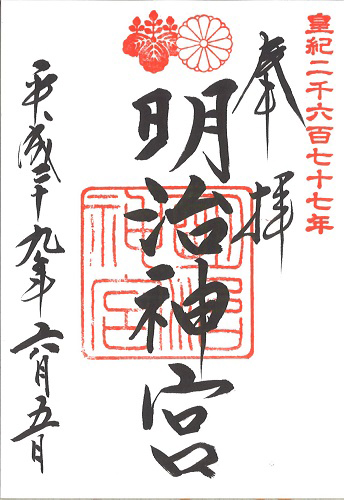 皇紀二千六百七十七年
奉拝
明治神宮
明治神宮
平成二十九年六月五日